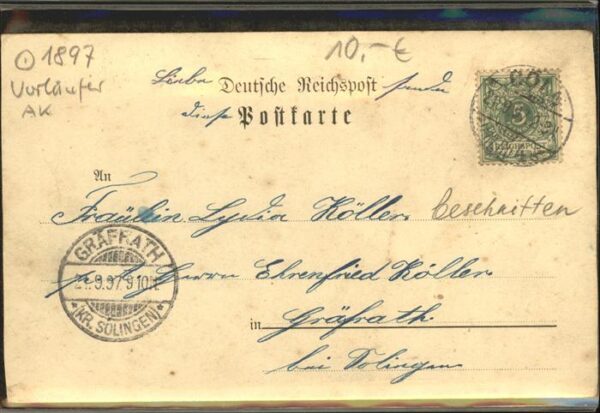 ⊙ 1897
Vorläufer
AK
10,-€
Liebe Deutsche Reichspost sende
diese Postkarte
CÖLN
5
REICHSPOST
An
Fräulein Lydia Köller beschnitten
Herrn Ehrenfried Köller
in Gräfrath
bei Solingen
GRÄFRATH
9.97. 9
* (KR. SOLINGEN) *